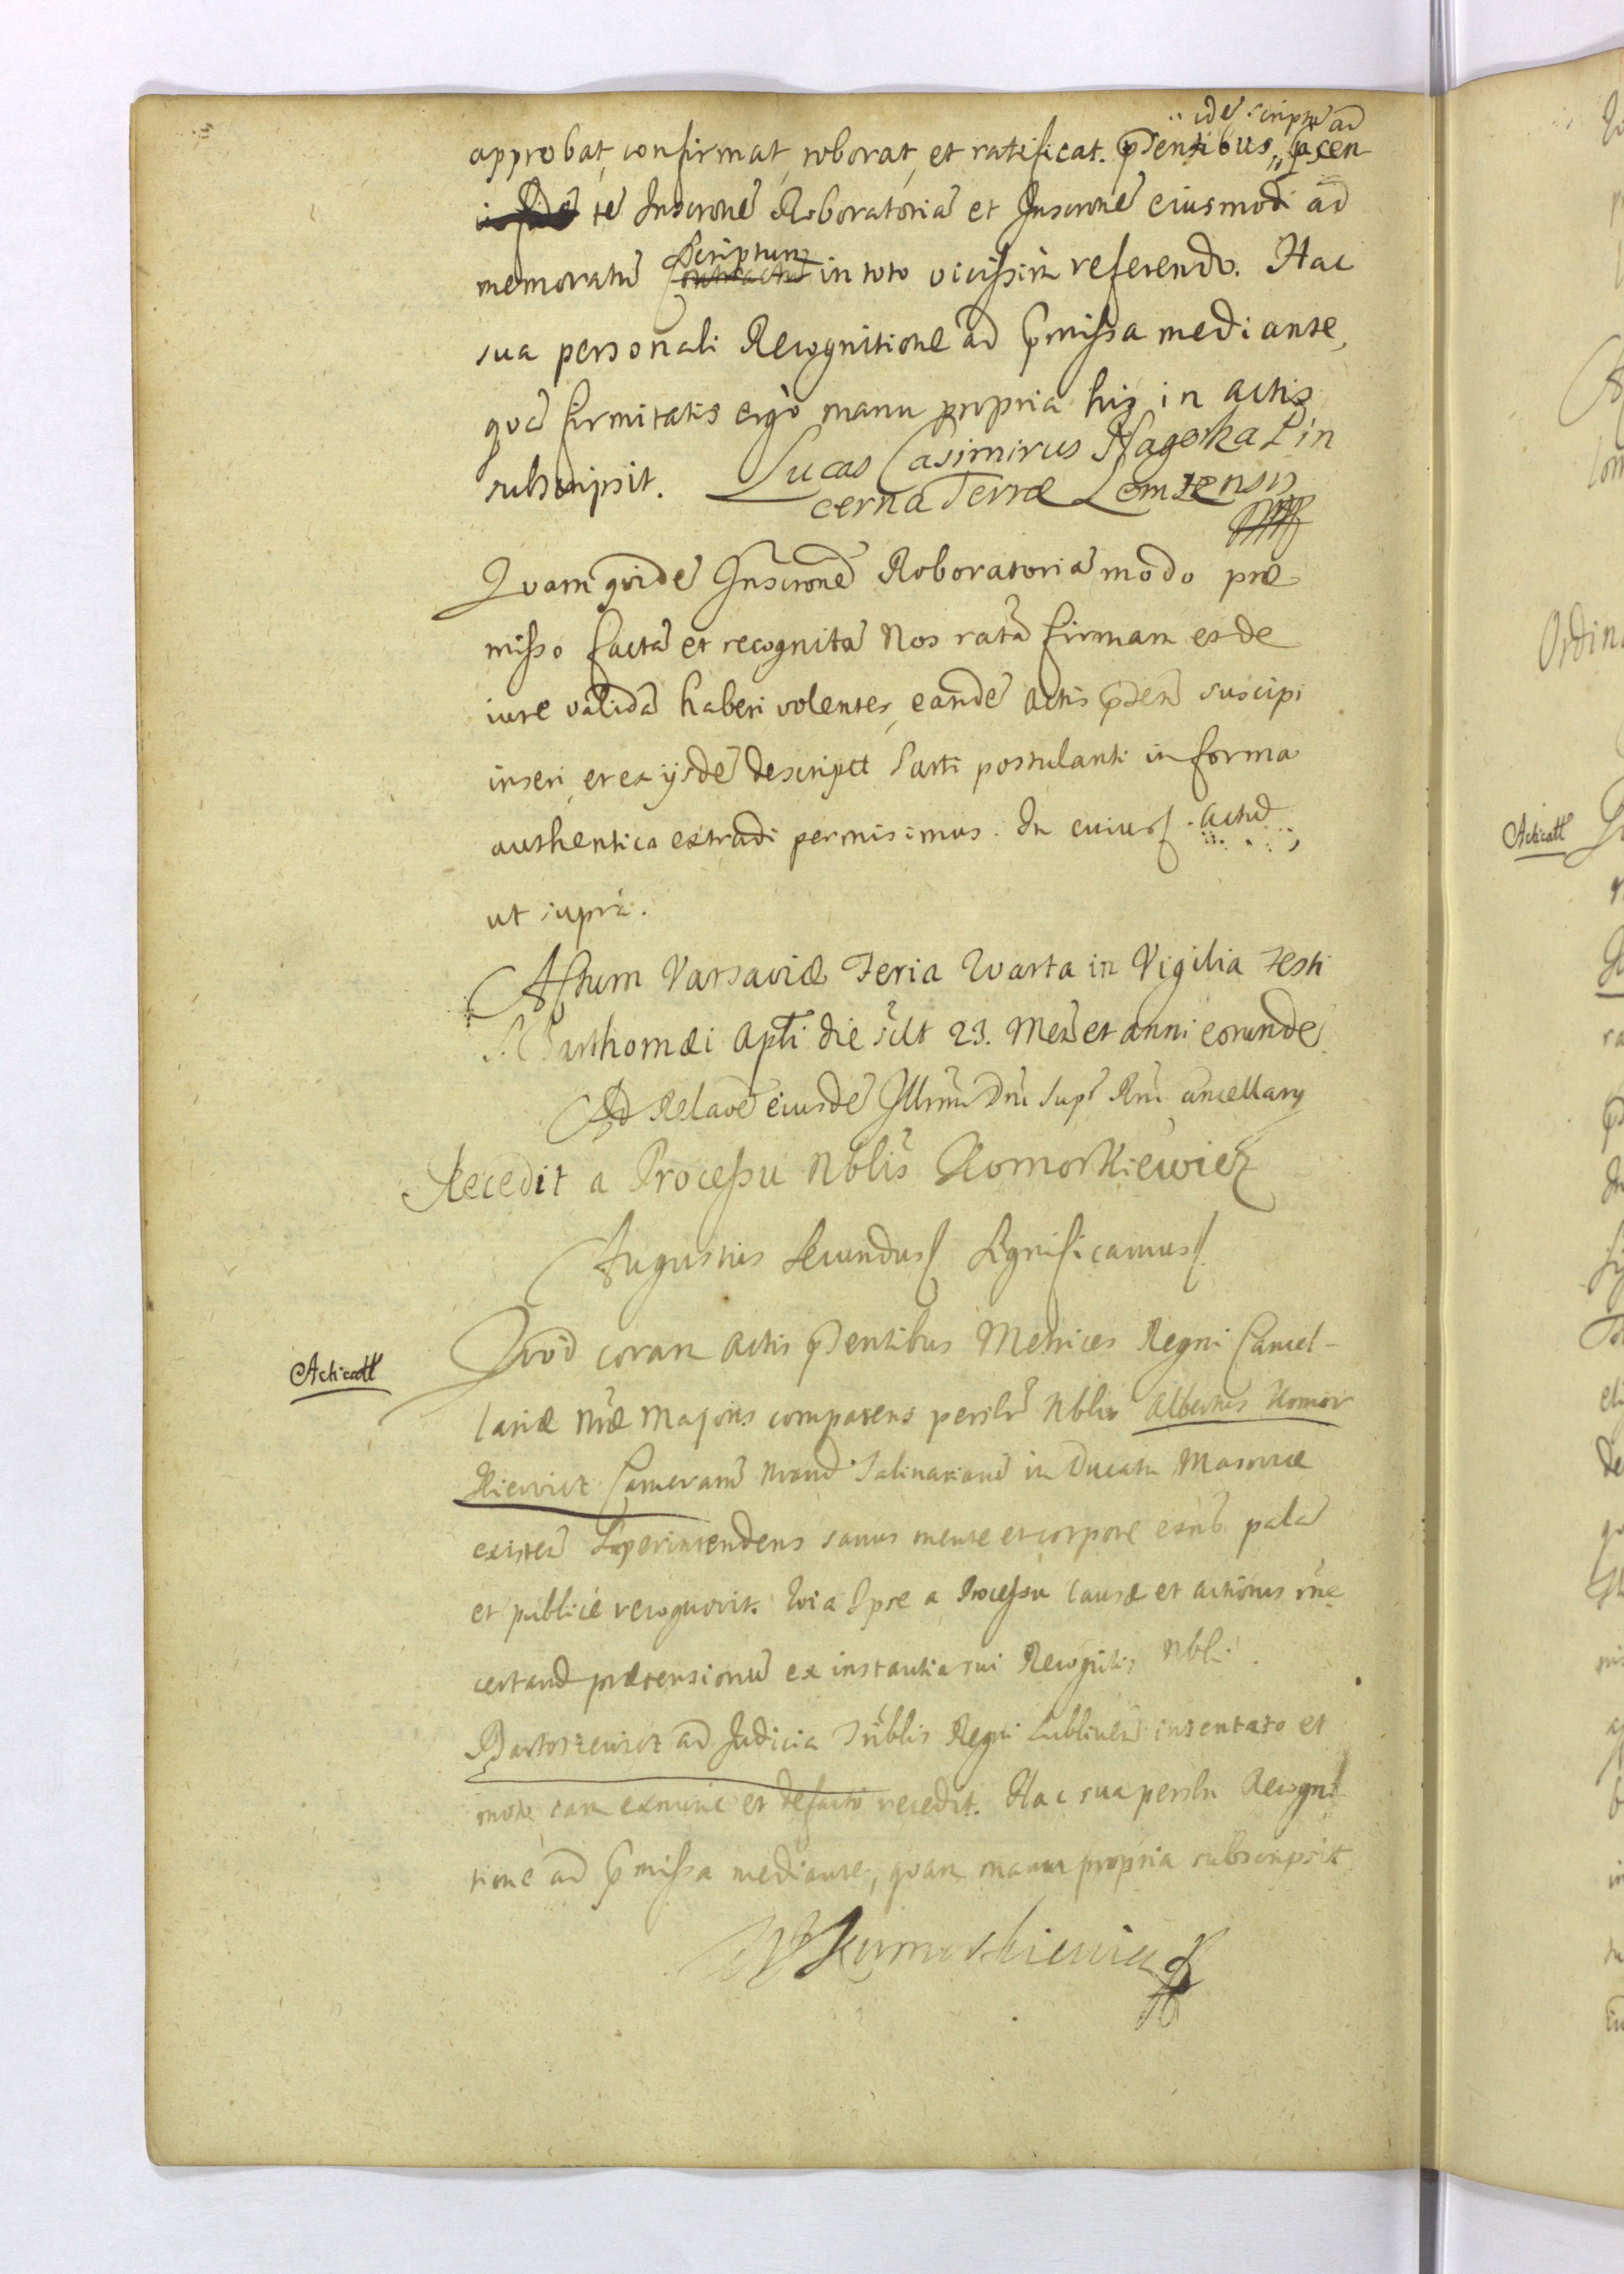 ide scriptu ad
approbat, confirmat, roborat, et ratificat. pdentibus, pcen
te Inscrone Roboratoria et Inscrone eiusmodi ad
memoratu Scriptum in toto vicissim referendo. Hac
sua personali Recognitione ad pmissa mediante,
qva firmitatis ergo manu propria his in actis
subscripsit. Lucas Casimirus Nagorka Pin
cerna Terræ Lomzensis
Qvam qvide Inscrone Roboratoria modo præ
misso facta et recognita Nos rata firmam et de
iure valida haberi volentes, eande Actis pden suscipi
inseri, et ex ijsde descript Parti postulanti in forma
authentica extradi permisimus. In cuius Actu
ut supra.
Actum Varsaviæ Feria Qvarta in Vigilia Festi
S. Barthomæi Apli die scilt 23. Men et anni eorunde
Ad Relaone eiusde Illrmi Dni Supr Rni Cancellary
Recedit a Processu Nblis Komorkiewicz
Augustus Secundus Significamus
Qvod coram Actis pdentibus Metrices Regni Cancel-
lariæ Nræ Majoris comparens perslr Nblis Albertus Komor
kiewicz Camerarum Nrarud Salinarium in Ducatu Masoviæ
existen Superintendens sanus mente et corpore exns pala
et publice recognovit. Qvia Ipse a Processu Causæ et actionis rne
certard prætensionu ex instantia sui Recognitis Nbli
Bartoszewicz ad Judicia Triblis Regni Lublinen intentato et
moto, eam exnunc et defacto recedit. Hac sua persln Recogni
tione ad pmissa mediante, qvam manu propria subscripsit
W Komorkiewicz
Acticatt
Acticatt
Ordin